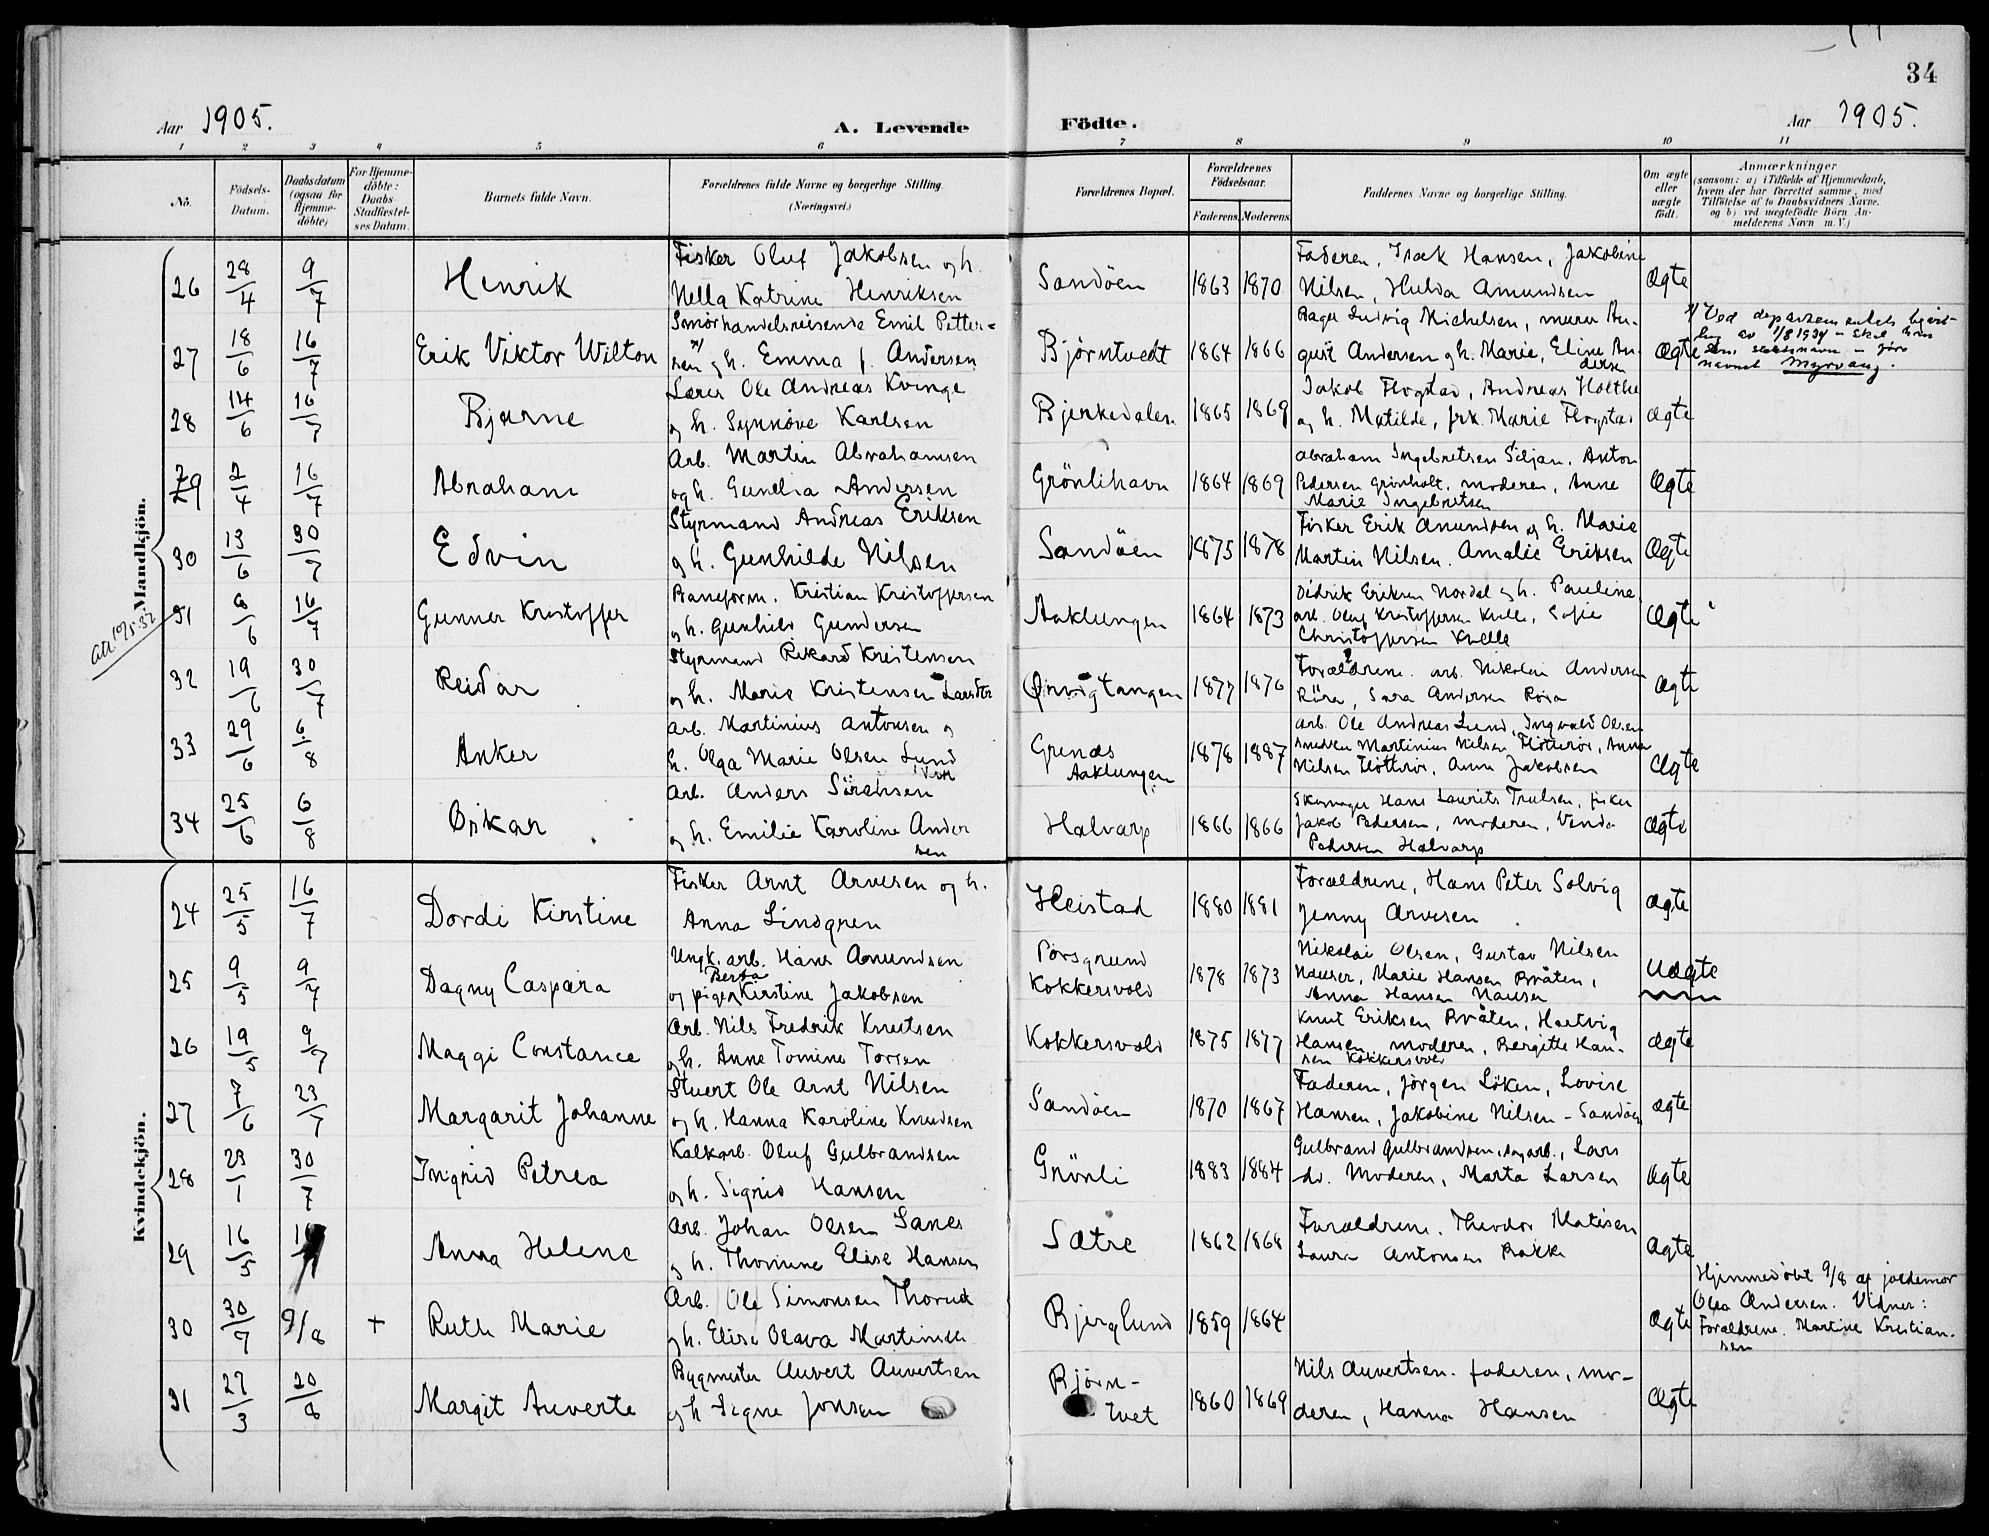 34
Aar 1905.
A. Levende Födte.
Aar 1905.
1 2 3 4 5 6 7 8 9 10 11
No.
Födsels-
Datum.
Daabsdatum
(ogsaa for
Hjemme-
döbte)
For Hjemme-
döbte:
Daabs-
Stadfæstel-
ses Datum.
Barnets fulde Navn.
Forældrenes fulde Navne og borgerlige Stilling.
(Næringsvei.)
Forældrenes Bopæl.
Forældrenes
Födselsaar.
Faderens. Moderens.
Faddernes Navne og borgerlige Stilling.
Om ægte
eller
uægte
födt.
Anmærkninger
(saasom: a) i Tilfælde af Hjemmedaab,
hvem der har forrettet samme, med
Tilföielse af to Daabsvidners Navne.
og b) ved uægtefödte Börn An-
melderens Navn m. V.)
Mandkjön.
26 28/4 9/7 Henrik
Fisker Oluf Jakobsen og h.
Nella Katrine Henriksen
Sandöen 1863 1870
Faderen, Isak Hansen, Jakobine
Nilsen, Hulda Amundsen
Ægte
27 18/6 16/7 Erik Viktor Wilton
Smörhandelsreisende Emil Petter=
sen x) og h. Emma f. Andersen
Bjørntvedt 1864 1866
Bager Ludvig Michelsen, murer Au-
gust Andersen og h. Marie, Eline An-
dersen
Ægte
x) Ved departementets bevil-
ling av 1/8 1934 - skal
som slektsnavn - føre
navnet Myrvang.
28 14/6 16/7 Bjarne
Lærer Ole Andreas Kvinge
og h. Synnöve Karlsen
Bjerkedalen 1865 1869
Jakob Flogstad, Andreas Holthe
og h. Matilde, frk. Marie Flogstad
ægte
29 2/4 16/7 Abraham
Arb. Martin Abrahamsen
og h. Gunelia Andersen
Grönlihavn 1864 1869
Abraham Ingebretsen Siljan, Anton
Pedersen Grönholt, moderen, Anne
Marie Ingebretsen
Ægte
30 13/6 30/7 Edvin
Styrmand Andreas Eriksen
og h. Gunhilde Nilsen
Sandöen 1875 1878
Fisker Erik Amundsen og h. Marie
Martin Nilsen. Amalie Eriksen
Ægte
att 19/5.32
31 8/6 16/7 Gunner Kristoffer
Baneform. Kristian Kristoffersen
og h. Gunhild Gundersen
Aaklungen 1864 1873
Didrik Eriksen Nordal og h. Pauline,
arb. Oluf Kristoffersen Kvelle, Sofie
Christoffersen Kvelle
Ægte
32 19/6 30/7 Reidar
Styrmand Rikard Kristensen
og h. Marie Kristensen
Ørvigtangen 1877 1876
Forældrene. arb. Nikolai Andersen
Röra, Sara Andersen Röra
Ægte
33 29/6 6/8 Anker
Arb. Martinius Antonsen og
h. Olga Marie Olsen Lund
Grenaes
Aaklungen 1878 1887
Arb. Ole Andreas Lund, Ingvald Olsen
smeden Martinius Nilsen Flötterör, Anna
Nilsen Flötterör, Anna Jakobsen
Ægte
34 25/6 6/8 Oskar
Arb. Anders Sörensen
og h. Emilie Karoline Ander
sen
Halvarp 1866 1866
Skomager Hans Laurits Trulsen, fisker
Jakob Pedersen, moderen, Vanda
Pedersen Halvarp
Ægte
Kvindekjön.
24 25/5 16/7 Dordi Kirstine
Fisker Arnt Arvesen og h.
Anna Lindgren
Heistad 1880 1881
Forældrene, Hans Peter Solvig
Jenny Arvesen
ægte
25 9/5 9/7 Dagny Caspara
Ungk. arb. Hans Amundsen
og pigen Berta Kirstine Jakobsen
Porsgrund
Kokkersvold 1878 1873
Nikolai Olsen, Gustav Nilsen
Nauser, Marie Hansen Bråten,
Anna Hansen Nauser
Uægte
26 19/5 9/7 Maggi Constance
Arb. Nils Fredrik Knutsen
og h. Anne Tomine Torsen
Kokkersvold 1875 1877
Knut Eriksen Bråten, Hartvig
Hansen, moderen, Bergitte Han-
sen Kokkersvold
Ægte
27 7/6 23/7 Margarit Johanne
Stuert Ole Arnt Nilsen
og h. Hanna Karoline Knudsen
Sandöen 1870 1867
Faderen, Jörgen Löken, Lovise
Hansen, Jakobine Nilsen - Sandöen
ægte
28 23/1 30/7 Ingrid Petrea
Kalkarb. Oluf Gulbrandsen
og h. Signid Hansen
Grönli 1883 1884
Gulbrand Gulbrandsen, dagarb., Lars
do. Moderen, Marta Larsen
Ægte
29 16/5 Anna Helene
Arb. Johan Olsen Sanes
og h. Thomine Elise Hansen
Sætre 1862 1868
Forældrene. Theodor Matisen
Laura Antonsen Bakke
Ægte
30 30/7 9/8 + Ruth Marie
Arb. Ole Simonsen Thorud
og h. Elise Olava Martinsen
Bjerglund 1859 1864
Ægte
Hjemmedöbt 9/8 af jordemor
Olea Andersen. Vidner:
Forældrene. Martine Kristian-
sen
31 27/3 20/8 Margit Auverte
Bygmester Auvert Auvertsen
og h Signe Jonsen
Björn-
tvet 1860 1869
Nils Auvertsen. faderen, mo-
deren, Hanna Hansen
Ægte